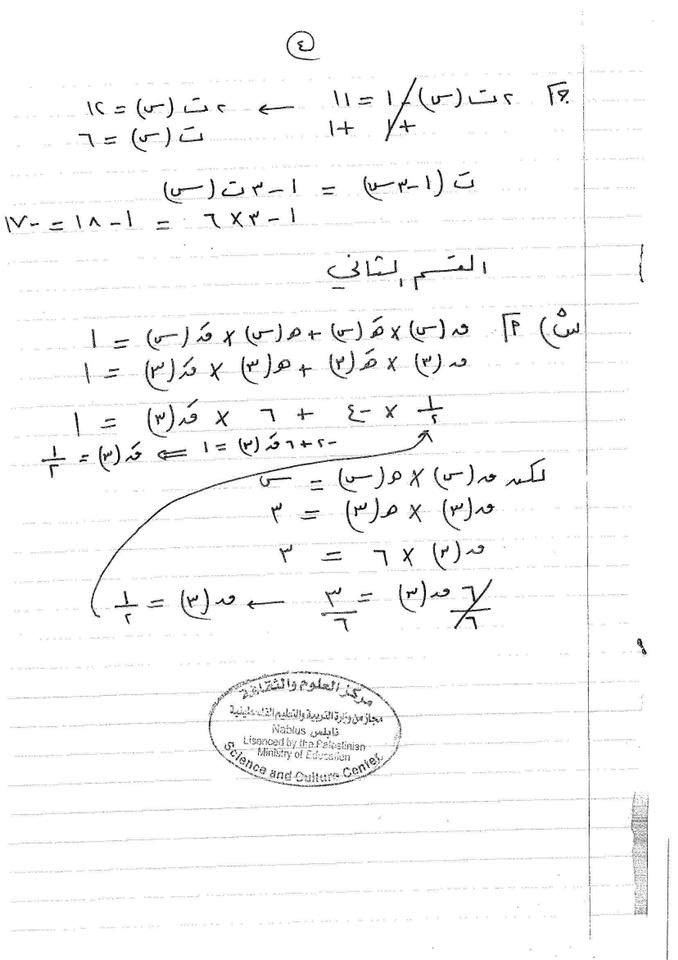 ٤
ج) ٢ت(س) - ١ = ١١ ← ٢ت(س) = ١٢
+١ +١ ت(س) = ٦
ت(١-٣س) = ١ - ٣ت(س)
١ - ٣×٦ = ١ - ١٨ = -١٧
القسم الثاني
س٥) أ) ق(س) × هَ(س) + ه(س) × قَ(س) = ١
ق(٣) × هَ(٣) + ه(٣) × قَ(٣) = ١
١/٢ × -٤ + ٦ × قَ(٣) = ١
-٢ + ٦قَ(٣) = ١ ⇐ قَ(٣) = ١/٢
لكن ق(س) × ه(س) = س
ق(٣) × ه(٣) = ٣
ق(٣) × ٦ = ٣
٦/٦ ق(٣) = ٣/٦ ← ق(٣) = ١/٢
مركز العلوم والثقافة
مجاز من وزارة التربية والتعليم الفلسطينية
نابلس Nablus
Lisenced by the Palestinian
Ministry of Education
Science and Culture Center